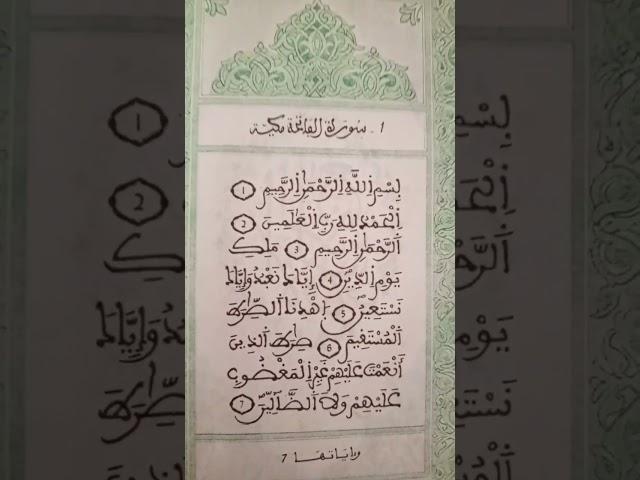 1. سورة الفاتحة مكية
بِسْمِ اِ۬للَّهِ اِ۬لرَّحْمَٰنِ اِ۬لرَّحِيمِ 1
اَ۬لْحَمْدُ لِلهِ رَبِّ اِ۬لْعَٰلَمِينَ 2
اَ۬لرَّحْمَٰنِ اِ۬لرَّحِيمِ 3 مَلِكِ
يَوْمِ اِ۬لدِّينِ 4 إِيَّاكَ نَعْبُدُ وَإِيَّاكَ
نَسْتَعِينُ 5 اِ۪هْدِنَا اَ۬لصِّرَٰطَ
اَ۬لْمُسْتَقِيمَ 6 صِرَٰطَ اَ۬لذِينَ
أَنْعَمْتَ عَلَيْهِمْ غَيْرِ اِ۬لْمَغْضُوبِ
عَلَيْهِمْ وَلَا اَ۬لضَّآلِّينَ 7
وءاياتها 7